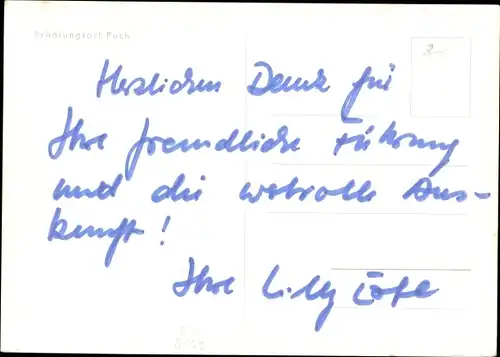 Erholungsort Puch
Herzlichen Dank für
Ihre freundliche Führung
und die wetvolle Aus-
kunft!
Ihre Lilly